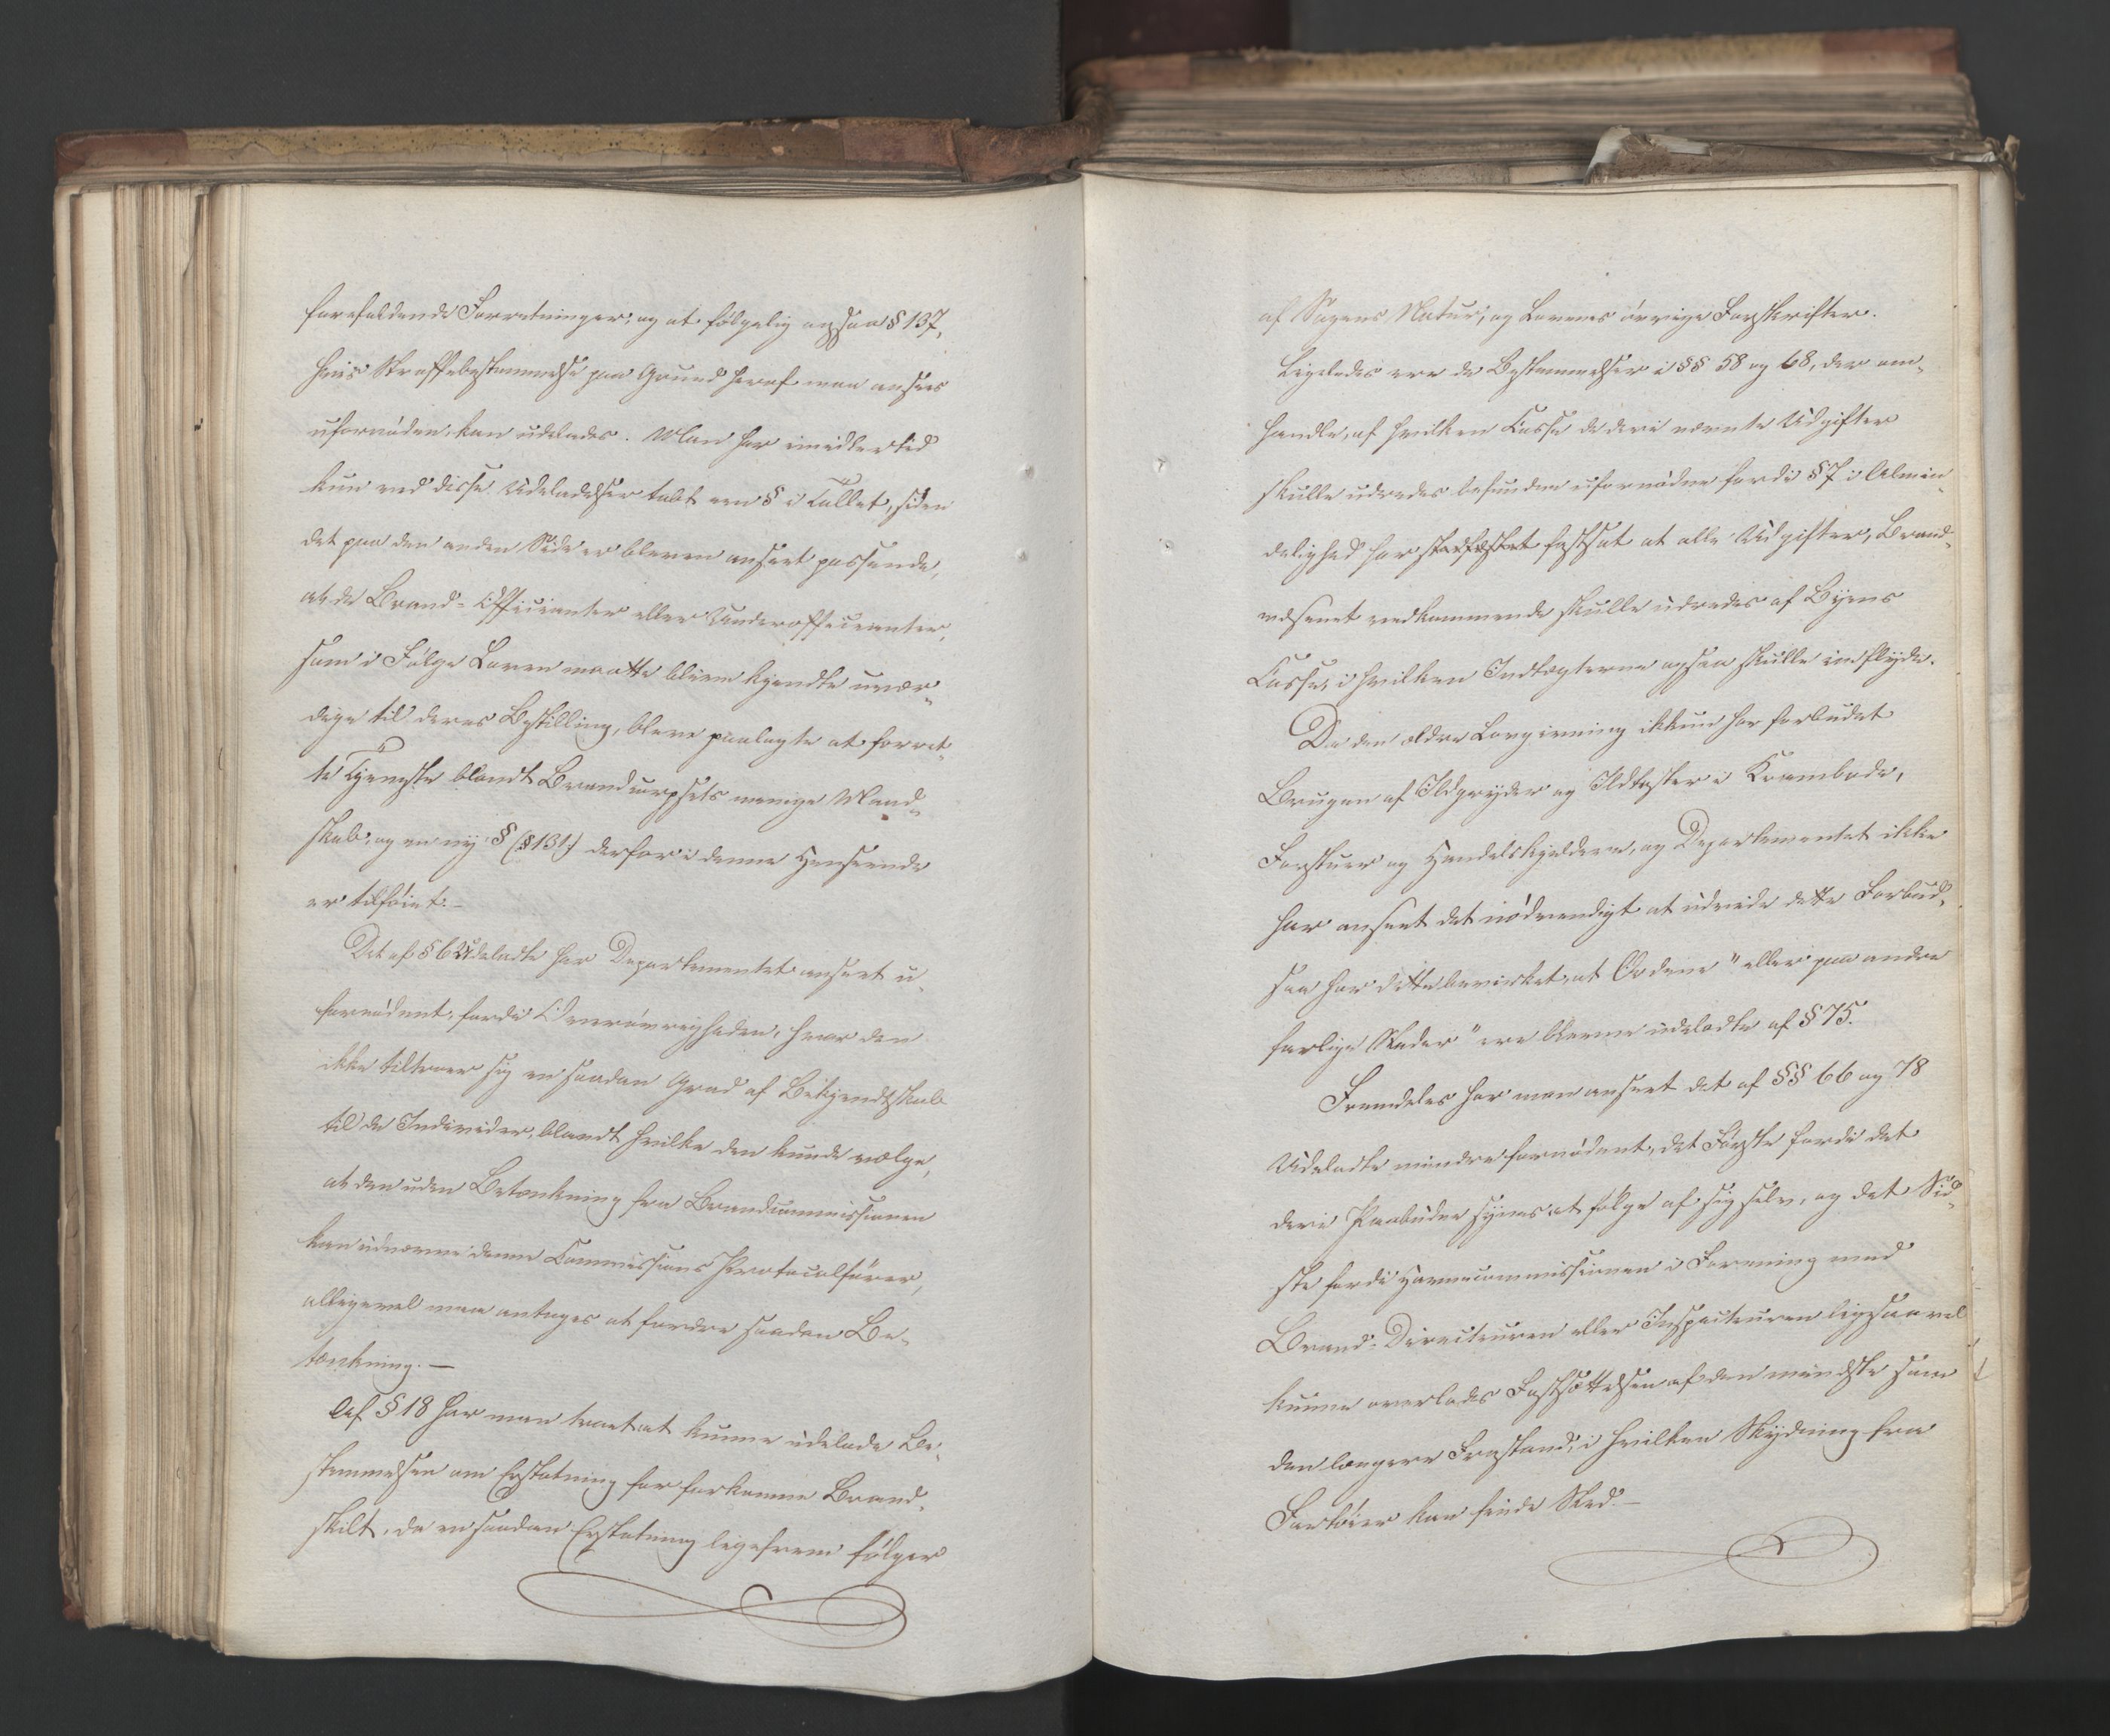 forefaldende Forretninger, og at følgelig ogsaa § 137,
hvis Straffebestemmelse paa Grund heraf maa ansees
ufornøden, kan udelades. Man har imidlertid
kun ved disse Udeladelser tabt een § i Tallet, siden
det paa den anden Side er bleven anseet passende,
at de Brand-Officianter eller Underofficianter,
som i Følge Loven maatte blive kjendte uvær-
dige til deres Bestilling, bleve paalagte at forret-
te Tjeneste blandt Brandcorpsets menige Mand-
skab, og en ny § (§ 131) derfor i denne Henseende
er tilføiet. –
Det af § 6 Udeladte har Departementet anseet u-
fornødent, fordi Overøvrigheden, hvor den
ikke tiltroer sig en saadan Grad af Bekjendtskab
til de Individer, blandt hvilke den kunde vælge,
at den uden Betænkning fra Brandcommissionen
kan udnævne denne Commissions Protocolfører,
alligevel maa antages at fordre saadan Be-
tænkning. –
Af § 18 har man troet at kunne udelade Be-
stemmelsen om Erstatning for forkomne Brand-
skilt, da en saadan Erstatning ligefrem følger
af Sagens Natur, og Lovens øvrige Forskrifter.
Ligeledes ere de Bestemmelser i §§ 58 og 68, der om-
handle, af hvilken Casse de deri nævnte Udgifter
skulle udredes befundne ufornødne fordi § 7 i Almin-
delighed har stadfæstet fastsat at alle Udgifter, Brand-
væsenet vedkommende skulle udredes af Byens
Casse, i hvilken Indtægterne ogsaa skulle indflyde.
Da den ældre Lovgivning ikkun har forbudet
Brugen af Ildgryder og Ildtester i Krambode,
Forstuer og Handelskjeldere, og Departementet ikke
har anseet det nødvendigt at udvide dette Forbud,
saa har dette bevirket, at Ordene "eller paa andre
farlige Steder" ere blevne udeladte af § 75.
Fremdeles har man anseet det af §§ 66 og 78
Udeladte mindre fornødent, det Første fordi det
deri Paabudne synes at følge af sig selv, og det Sid-
ste fordi Havnecommissionen i Forening med
Brand-Directeuren eller Inspecteuren ligesaavel
kunne overlades Fastsættelsen af den mindste som
den længere Frastand, i hvilken Skydning fra
Fartøier kan finde Sted. –